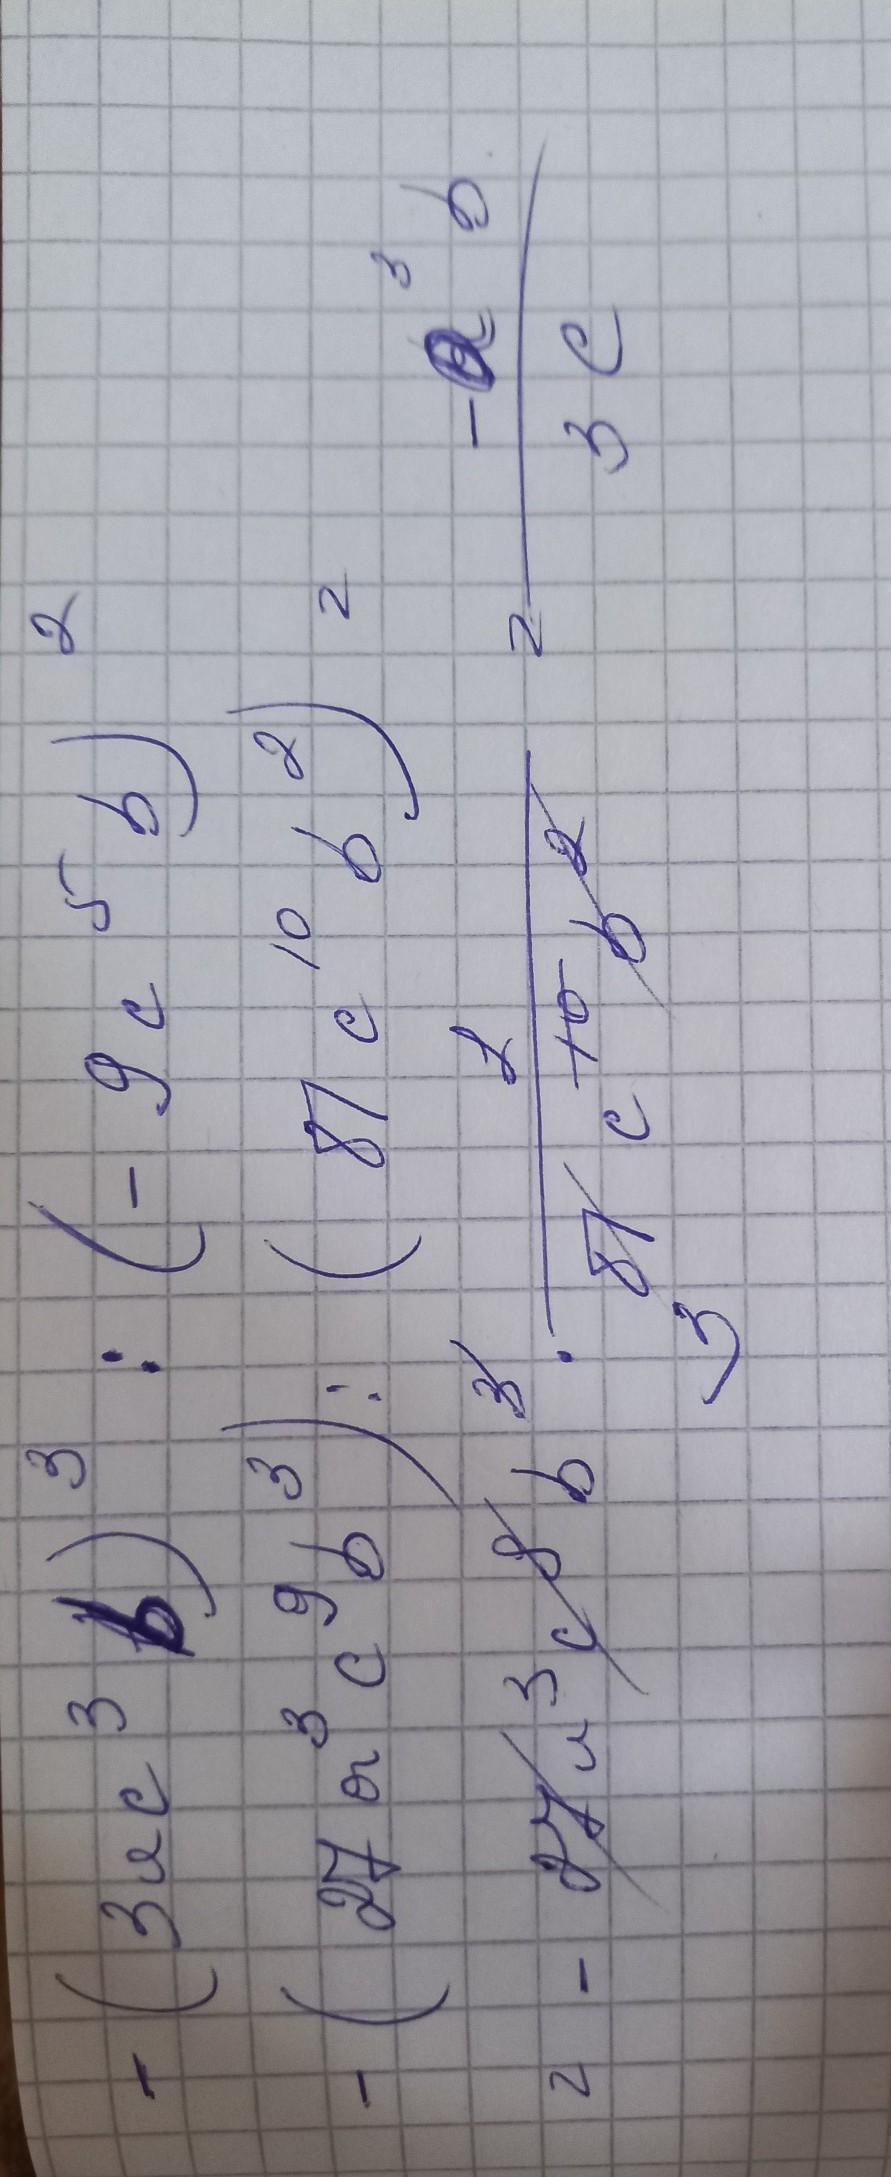 -(3ac³b)³ : (-9c⁵b)²
-(27a³c⁹b³) : (81c¹⁰b²) =
= -27a³c⁹b³ · 1/81c¹⁰b² = -a³b/3c
3